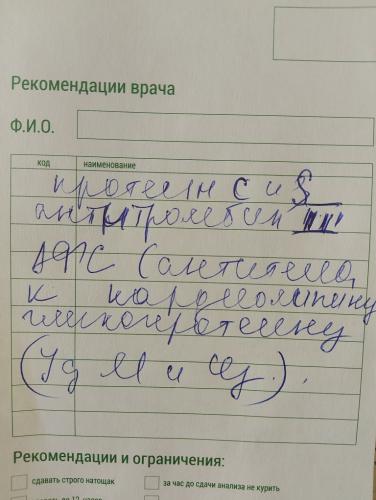 Рекомендации врача
Ф.И.О.
код наименование
протеин С и S
антитромбин "III"
АФС (антитела
к кардиолипину
гликопротеину
(Ig M и Ig).
Рекомендации и ограничения:
сдавать строго натощак за час до сдачи анализа не курить
12 часов